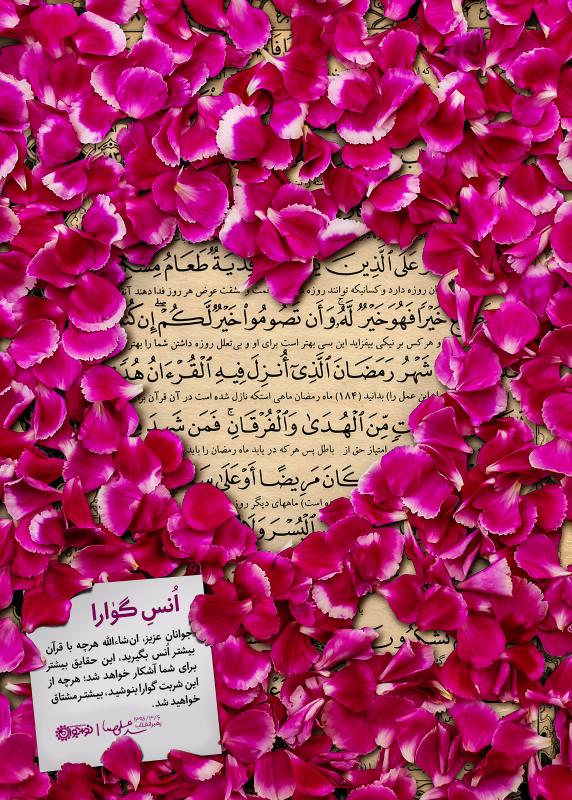 عَلَى ٱلَّذِينَ
فِدْيَةٌ طَعَامُ
خَيْرًا فَهُوَ خَيْرٌ لَّهُۥ وَأَن تَصُومُوا۟ خَيْرٌ لَّكُمْ إِن
و هر کس بر نیکی بیفزاید این بسی بهتر است برای او و بی‌تعلل روزه داشتن شما را بهتر
شَهْرُ رَمَضَانَ ٱلَّذِىٓ أُنزِلَ فِيهِ ٱلْقُرْءَانُ
این عمل را) بدانید (۱۸۴) ماه رمضان ماهی استکه نازل شده است در آن قرآن
مِّنَ ٱلْهُدَىٰ وَٱلْفُرْقَانِ فَمَن شَهِدَ
امتیاز حق از باطل پس هر که در یابد ماه رمضان را باید
كَانَ مَرِيضًا أَوْ عَلَىٰ
است) ماههای دیگر
ٱلْيُسْرَ
اُنسِ گوارا
جوانان عزیز، ان‌شاءالله هرچه با قرآن
بیشتر اُنس بگیرید، این حقایق بیشتر
برای شما آشکار خواهد شد؛ هرچه از
این شربت گوارا بنوشید، بیشتر مشتاق
خواهید شد.